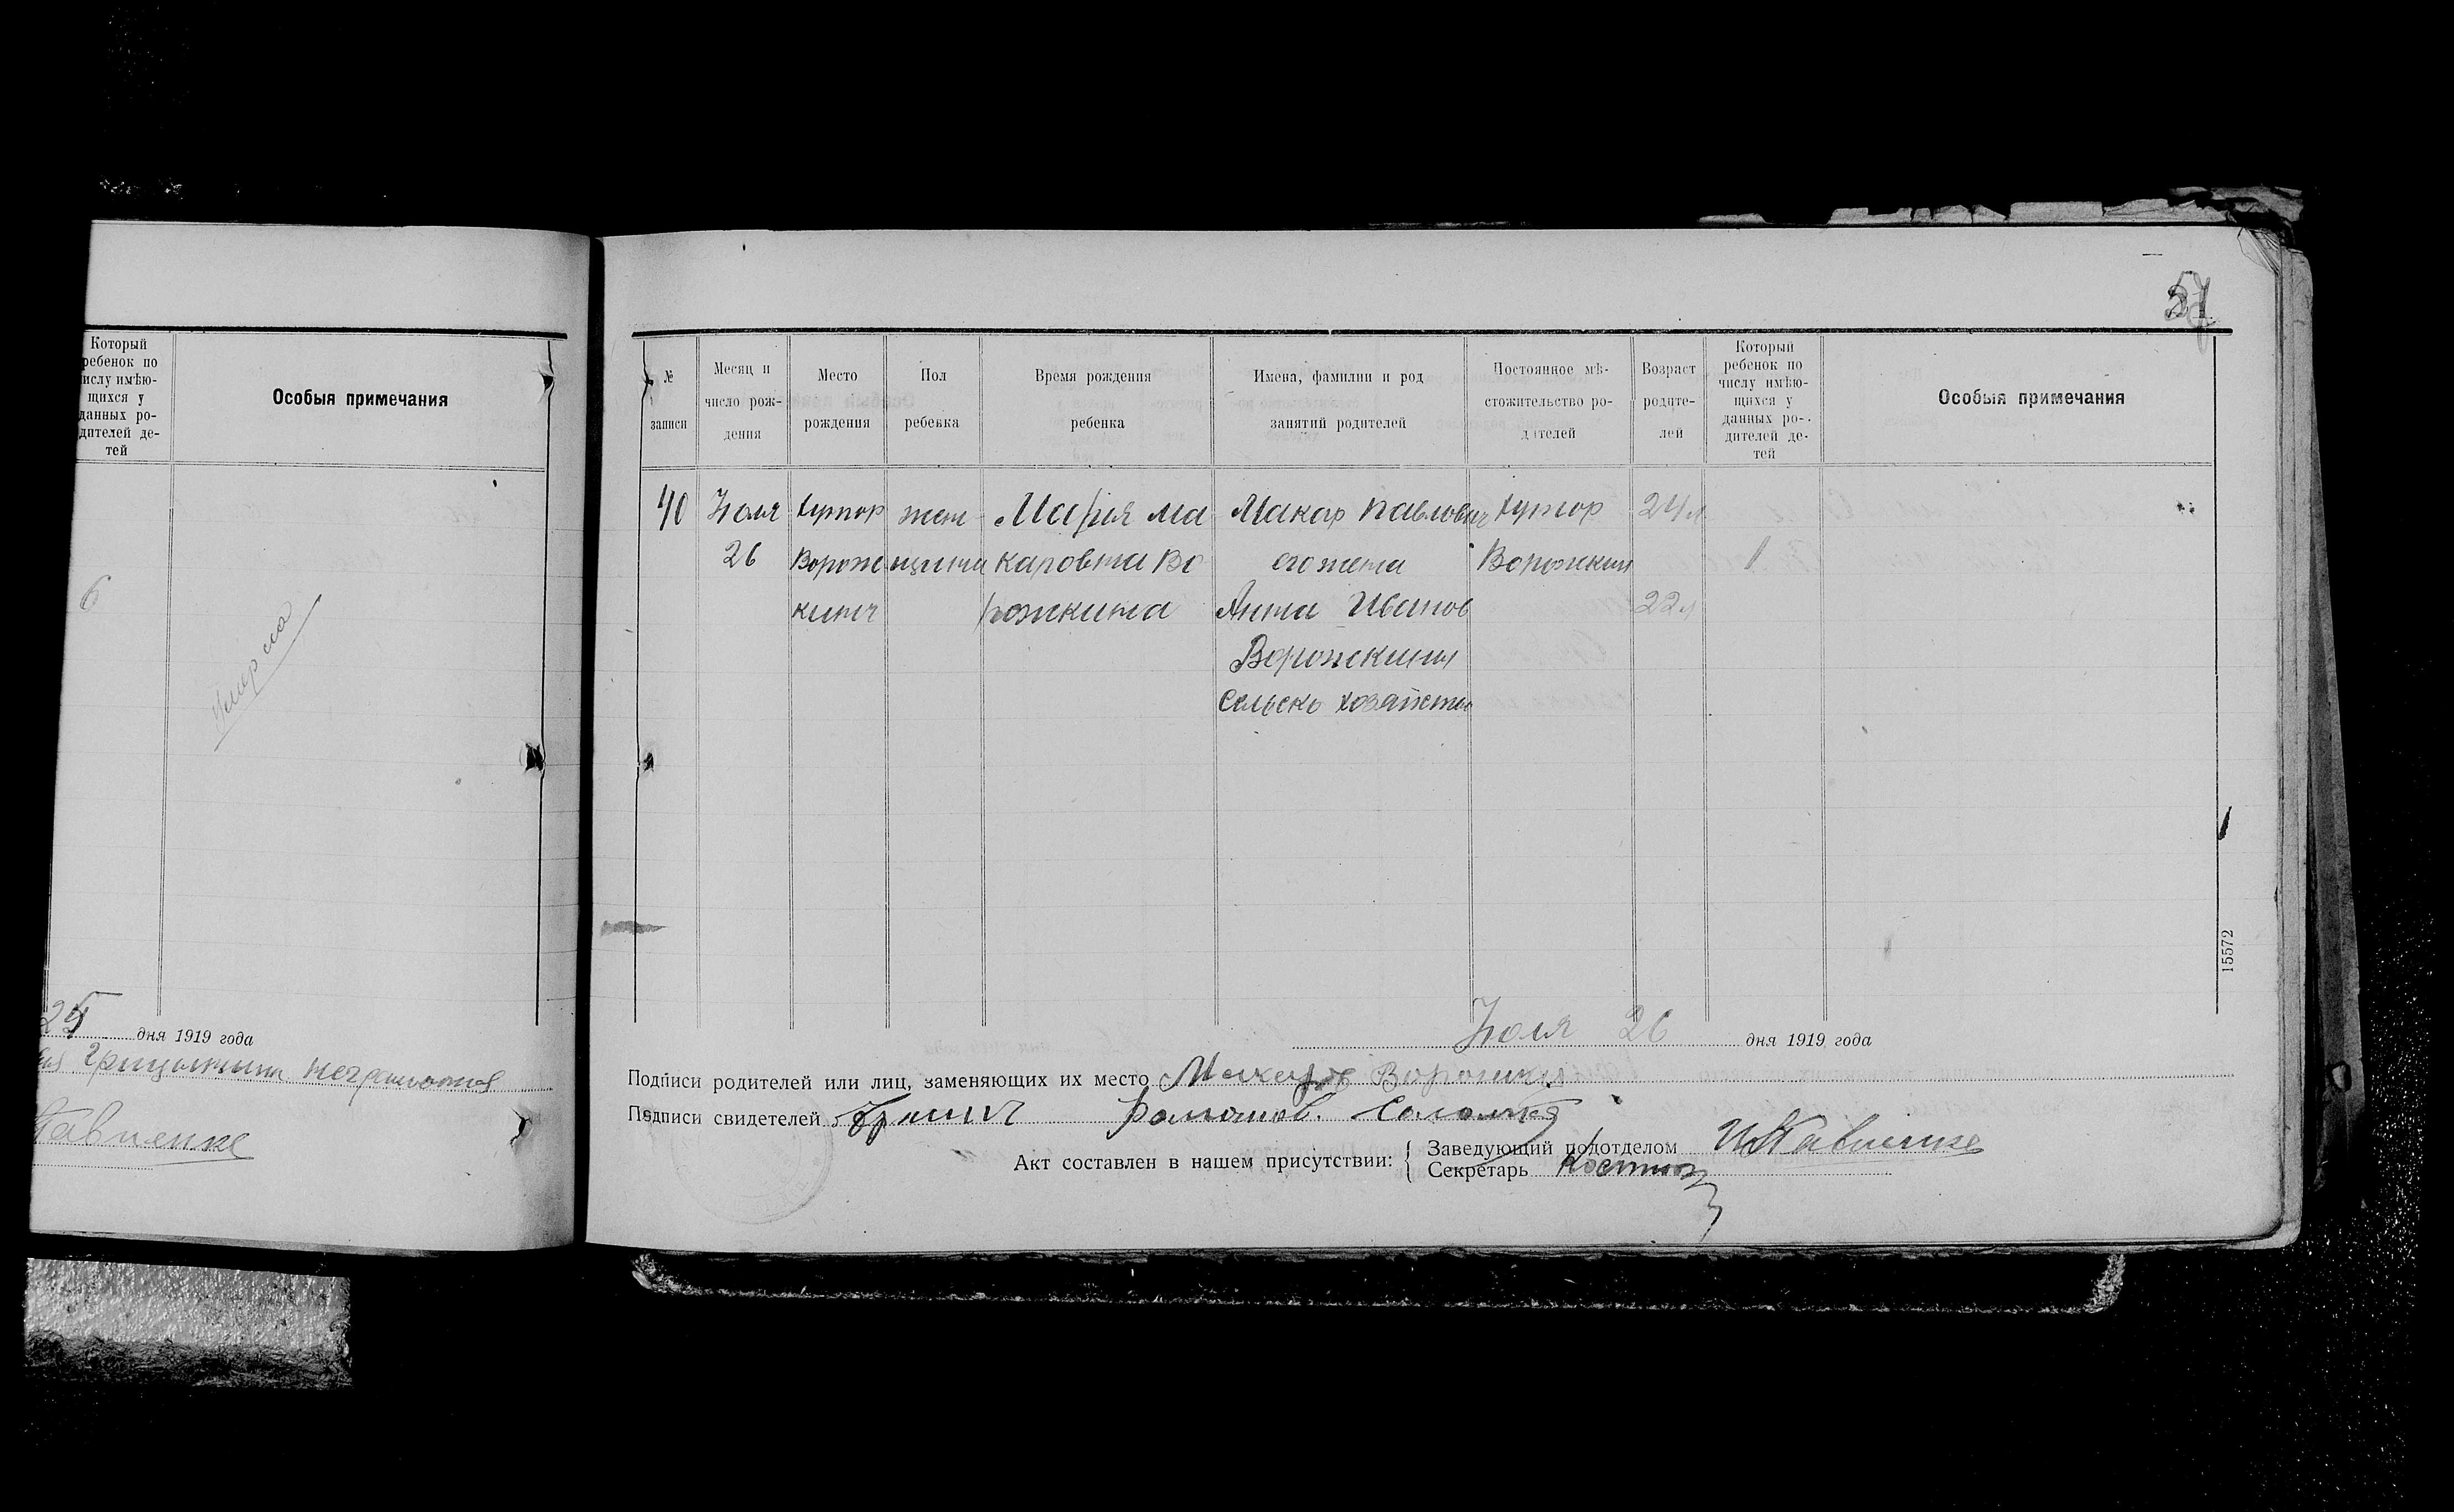 Который
ребенок по
числу имѣю-
щихся у
данных ро-
дителей де-
тей
Особыя примечания
6
25 дня 1919 года
неграмотная
Павленке
57
№
записи
Месяц и
число рож-
дения
Место
рождения
Пол
ребенка
Время рождения
ребенка
Имена, фамилии и род
занятий родителей
Постоянное мѣ-
стожительство ро-
дителей
Возраст
родите-
лей
Который
ребенок по
числу имѣю-
щихся у
данных ро-
дителей де-
тей
Особыя примечания
40 Июля хутор жен Мария ма Макар Павлович хутор 24 л
26 Ворож щина каровна Во его жена Ворожкин 1
кинч рожкина Анна Иванов 22 л
Ворожкины
Сельско хозяйство
Июля 26 дня 1919 года
Подписи родителей или лиц, заменяющих их место Макар Ворожкин
Подписи свидетелей
Акт составлен в нашем присутствии:
Заведующий подотделом И Павленке
Секретарь
15572